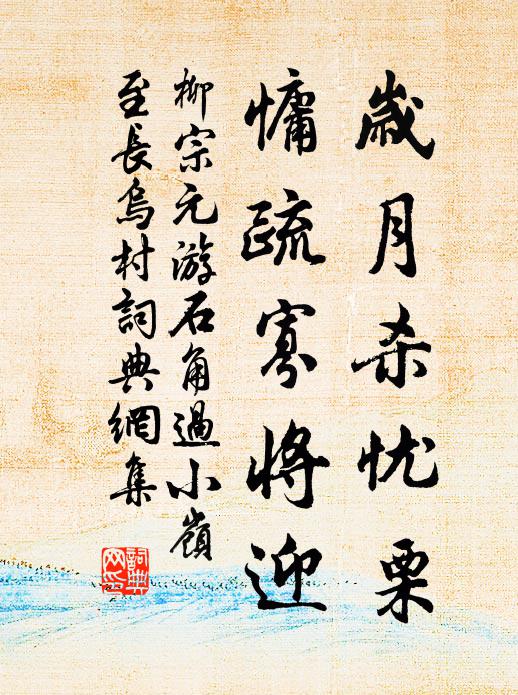 歲月杀忧栗
慵疏寡將迎
柳宗元游石角過小嶺
至長烏村詞典網集
詞典
网